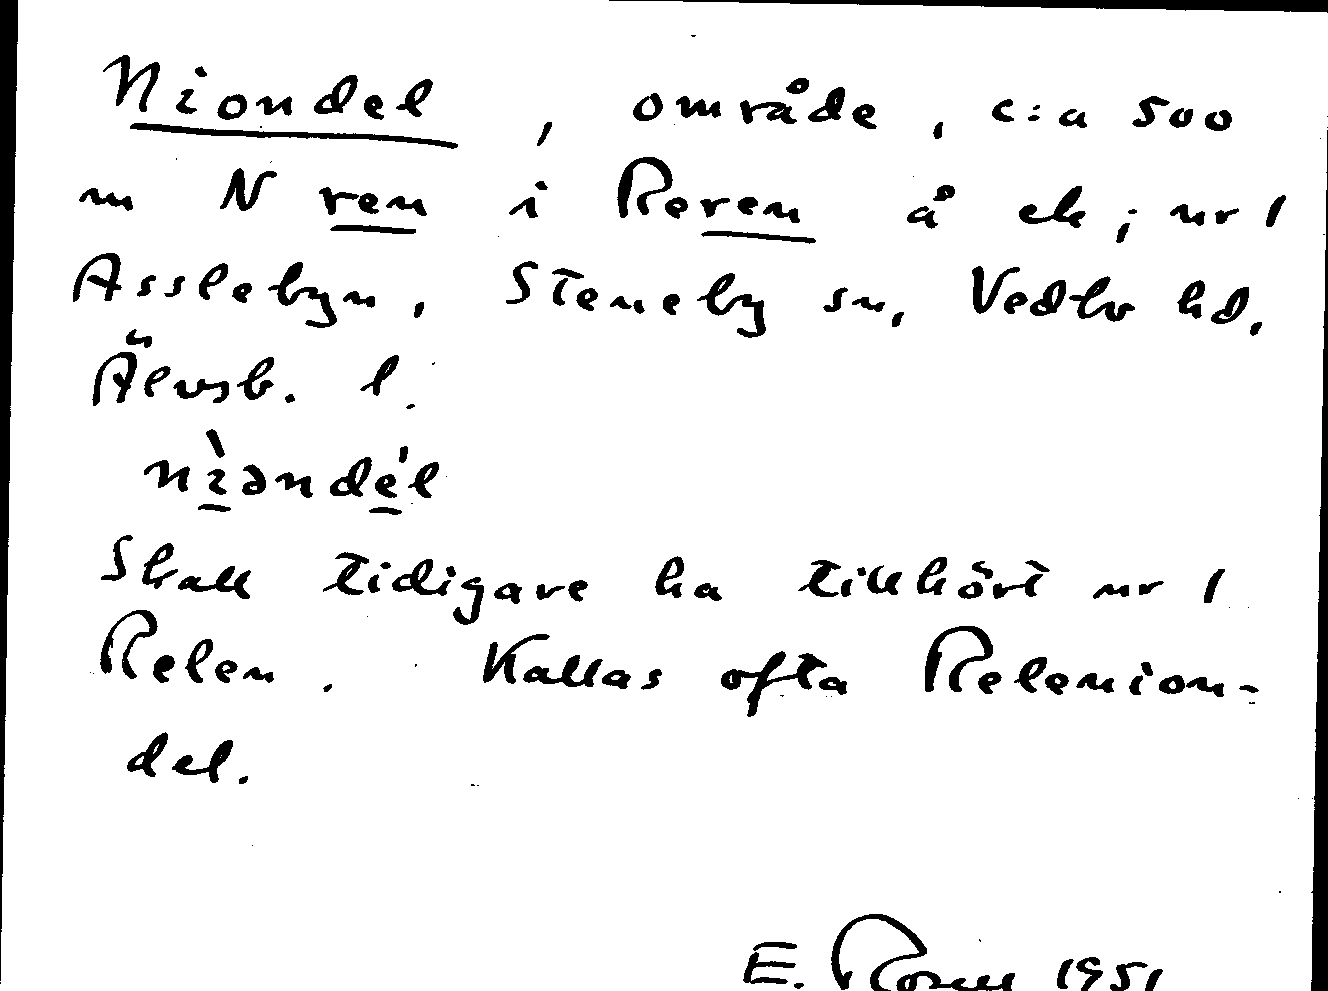 Niondel, område, c:a 500
m N ren i Reren å ek; nr 1
Asslebyn, Steneby sn, Vedbo hd,
Älvsb. l.
nìəndél
Skall tidigare ha tillhört nr 1
Relen. Kallas ofta Relenion-
del.
E. 1951